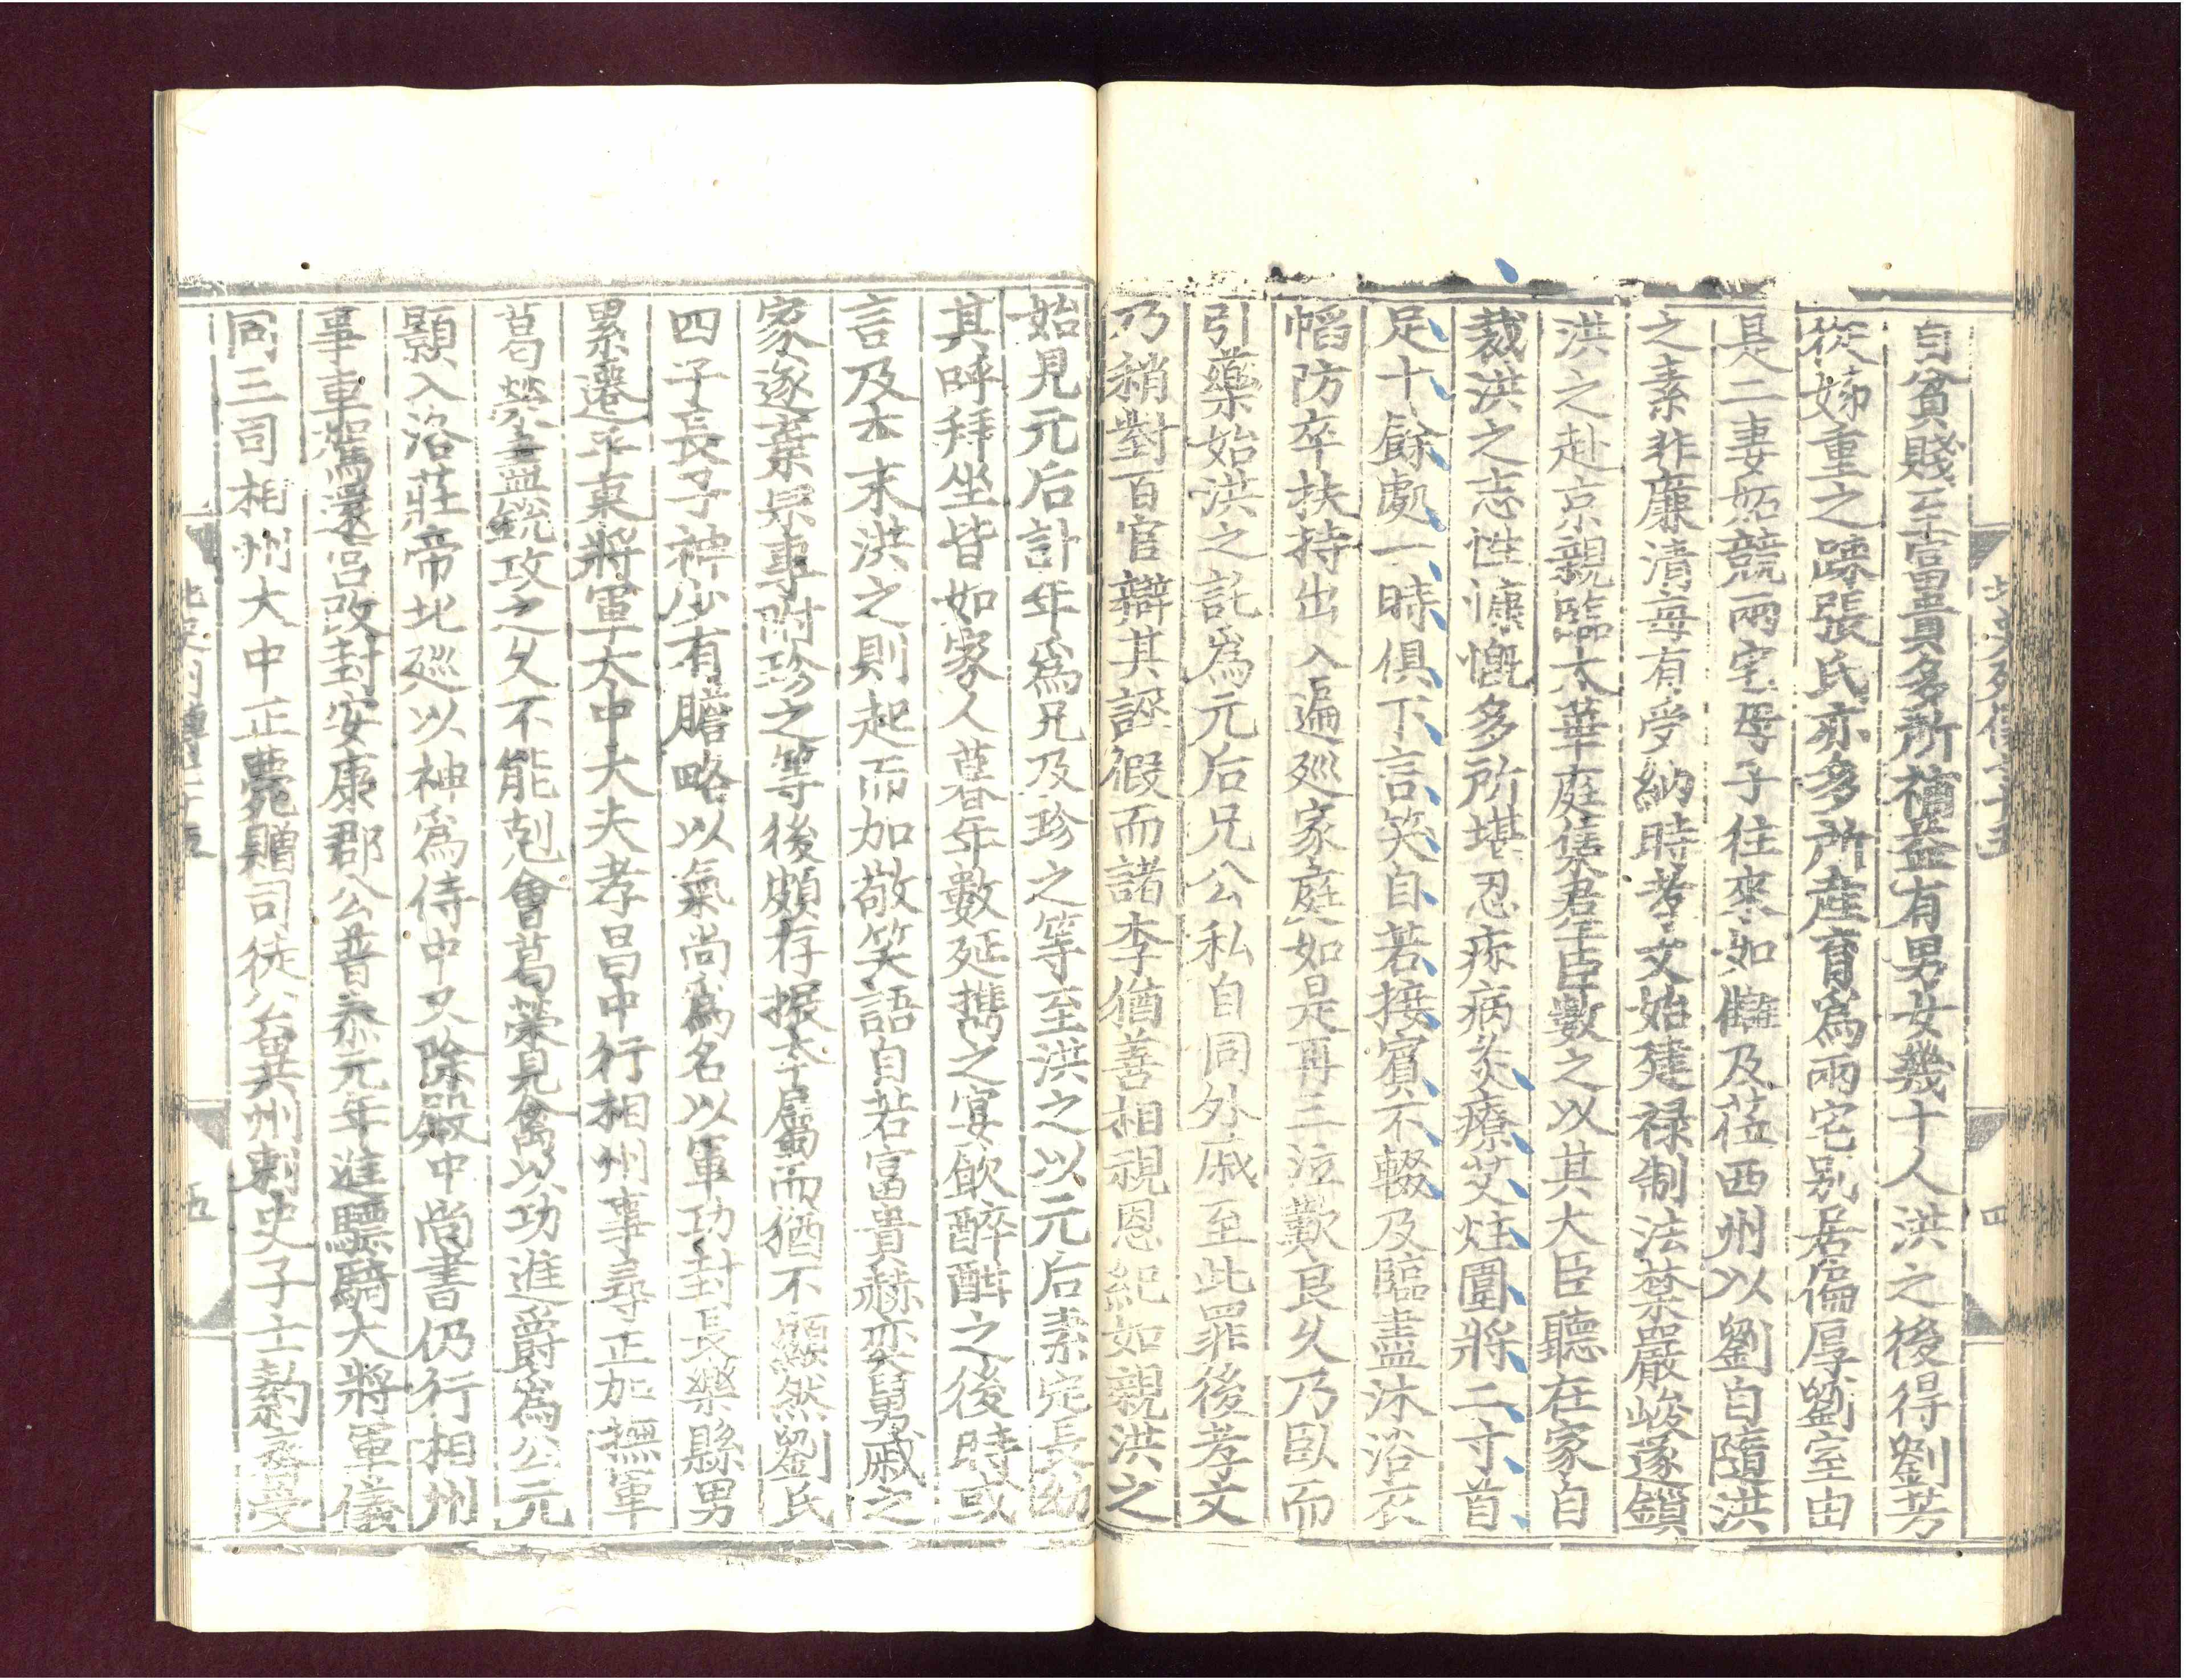 北史列傳二十五
四
自貧賤至富貴多所補益有男女幾十人洪之後得劉芳
從姊重之踈張氏亦多所產育爲兩宅别居偏厚劉室由
是二妻妬競兩宅母子徃來如讎及莅西州以劉自隨洪
之素非廉清每有受納時孝文始建禄制法禁嚴峻遂鎖
洪之赴京親臨太華庭集羣臣數之以其大臣聽在家自
裁洪之志性慷慨多所堪忍疹病灸療艾炷圍將二寸首
足十餘處一時俱下言笑自若接賓不輟及臨盡沐浴衣
幍防卒扶持出入遍廵家庭如是再三泣歎良久乃卧而
引藥始洪之託爲元后兄公私自同外戚至此罪後孝文
乃稍對百官辯其誣假而諸李猶善相視恩紀如親洪之
始見元后計年爲兄及珍之等至洪之以元后素定長幼
其呼拜坐皆如家人暮年數延攜之宴飲醉酣之後時或
言及本末洪之則起而加敬笑語自若富貴赫奕舅戚之
家遂棄宗專附珍之等後頗存振本屬而猶不顯然劉氏
四子長子神少有膽略以氣尚爲名以軍功封長樂縣男
累遷平東將軍太中大夫孝昌中行相州事尋正加撫軍
葛榮盡銳攻之久不能剋會葛榮見禽以功進爵爲公元
顥入洛莊帝北廵以神爲侍中又除殿中尚書仍行相州
事車駕還宮改封安康郡公普泰元年進驃騎大將軍儀
同三司相州大中正薨贈司徒公冀州刺史子士勣齊受
北史列傳二十五
五